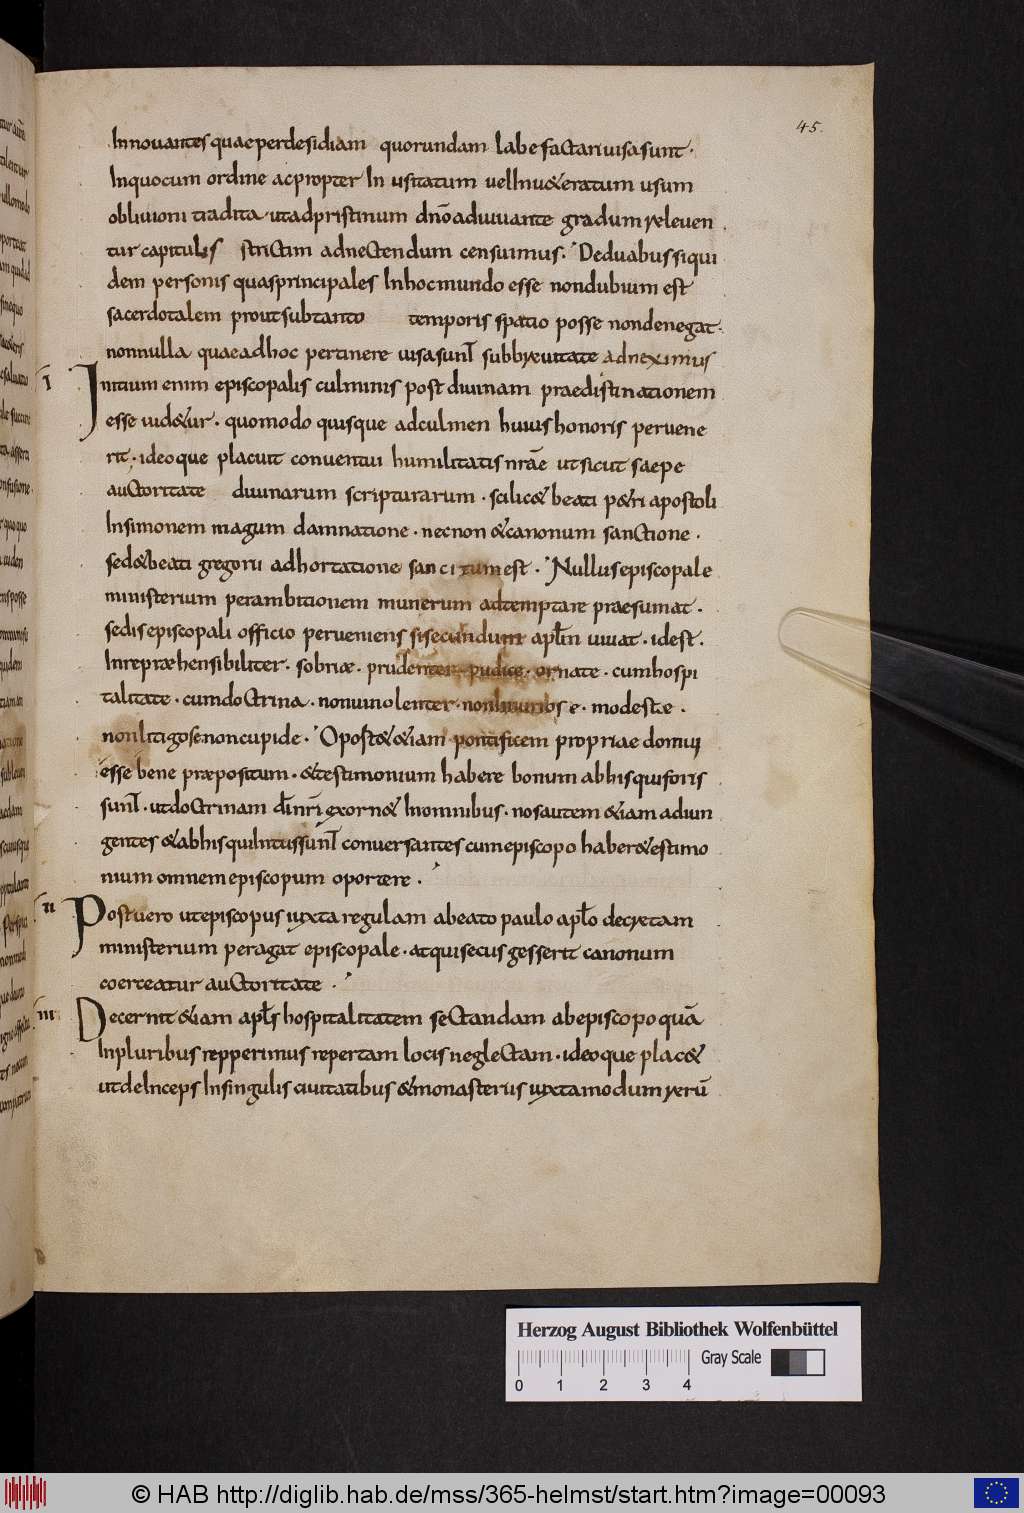 45.
Innovantes quae per desidiam quorundam labefactari visa sunt.
In quo cum ordine ac propter In usitatum vel Inv&eratum usum
oblivioni tradita ut ad pristinum dnō adiuuante gradum releuen
tur capitulis strictim adnectendum censuimus. De duabus siqui
dem personis quas principales In hoc mundo esse non dubium est
sacerdotalem prout sub tanto temporis spatio posse non denegat.
nonnulla quae ad hoc pertinere uisa sunt sub breuitate adneximus
I Initium enim episcopalis culminis post diuinam praedistinationem
esse uid&ur. quomodo quisque ad culmen huius honoris peruene
rit. ideoque placuit conuentui humilitatis nrāe ut sicut saepe
auctoritate diuinarum scripturarum. scilic& beati p&ri apostoli
In simonem magum damnatione. necnon & canonum sanctione.
sed & beati gregorii adhortatione sancitum est. Nullus episcopale
ministerium per ambitionem munerum adtemptare praesumat.
sedis episcopali officio perueniens si secundum aplīn uiuat. id est.
Inrepræhensibiliter. sobriæ. prudenter. pudice. ornate. cum hospi
talitate. cum doctrina. non uinolenter. non lituribse. modeste.
non litigose non cupide. Oport& &iam pontificem propriae domui
esse bene præpositum. & testimonium habere bonum ab his qui foris
sunt. ut doctrinam dn̄i nr̄i exorn& In omnibus. nos autem &iam adiun
gentes & ab his qui Intus sunt conuersantes cum episcopo haber& estimo
nium omnem episcopum oportere.
II Post uero ut episcopus iuxta regulam a beato paulo aplō decretam
ministerium peragat episcopale. at qui secus gesserit canonum
coerceatur auctoritate.
III Decernit &iam apls hospitalitatem sectandam ab episcopo quā
In pluribus repperimus repertam locis neglectam. ideoque plac&
ut deInceps In singulis ciuitatibus & monasteriis iuxta modum rerū
Herzog August Bibliothek Wolfenbüttel
Gray Scale
0 1 2 3 4
© HAB http://diglib.hab.de/mss/365-helmst/start.htm?image=00093